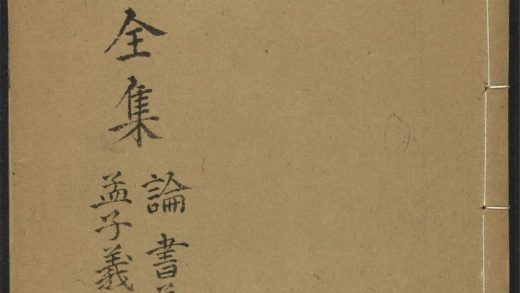 全集
論書
孟子義